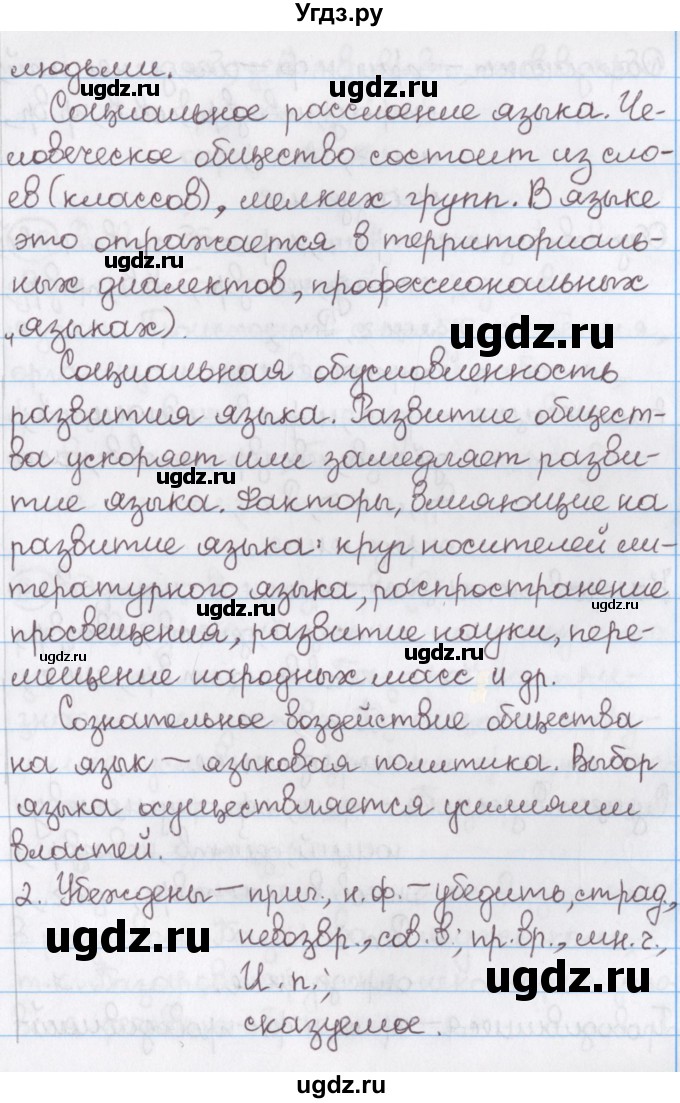 Угдз.ру
людьми.
ugdz.ru
Социальное расслоение языка. Че-
ugdz.ru
ловеческое общество состоит из сло-
ев (классов), мелких групп. В языке
это отражается в территориаль-
ugdz.ru
ных диалектов, профессиональных
„языках).
ugdz.ru
Социальная обусловленность
развития языка. Развитие общест-
ва ускоряет или замедляет разви-
ugdz.ru
тие языка. Факторы, влияющие на
развитие языка: круг носителей ли-
тературного языка, распространение
ugdz.ru
просвещения, развитие науки, пере-
ugdz.ru
ugdz.ru
мещение народных масс и др.
Сознательное воздействие общества
на язык – языковая политика. Выбор
языка осуществляется усилиями
властей.
2. Убеждены – прич., н.ф. – убедить, страд.,
невозвр., сов.в; пр.вр., мн.ч.,
ugdz.ru
ugdz.ru
И.п.;
сказуемое.
ugdz.ru